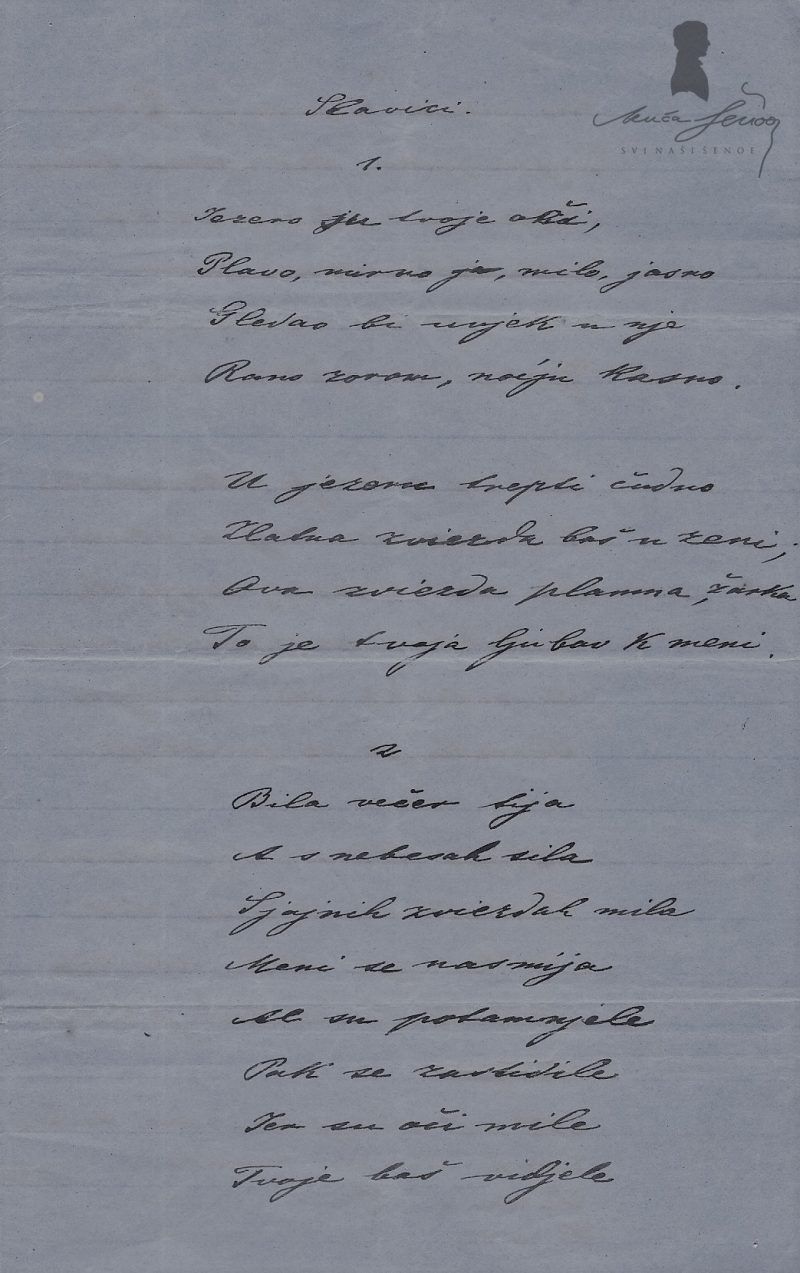 Slavici.
1.
Jezero su tvoje oči,
Plavo, mirno je, milo, jasno
Gledao bi uvjek u nje
Rano zorom, noćju kasno.
U jezeru trepti čudno
Zlatna zviezda baš u zeni;
Ova zviezda plamna, žarka
To je tvoja ljubav k meni.
2
Bila večer sija
A s nebesah sila
Sjajnih zviezdah mila
Meni se nasmija
Al su potamnjele
Pak se zastidile
Jer su oči mile
Tvoje baš vidjele
Šenoa
SVI NAŠI ŠENOE